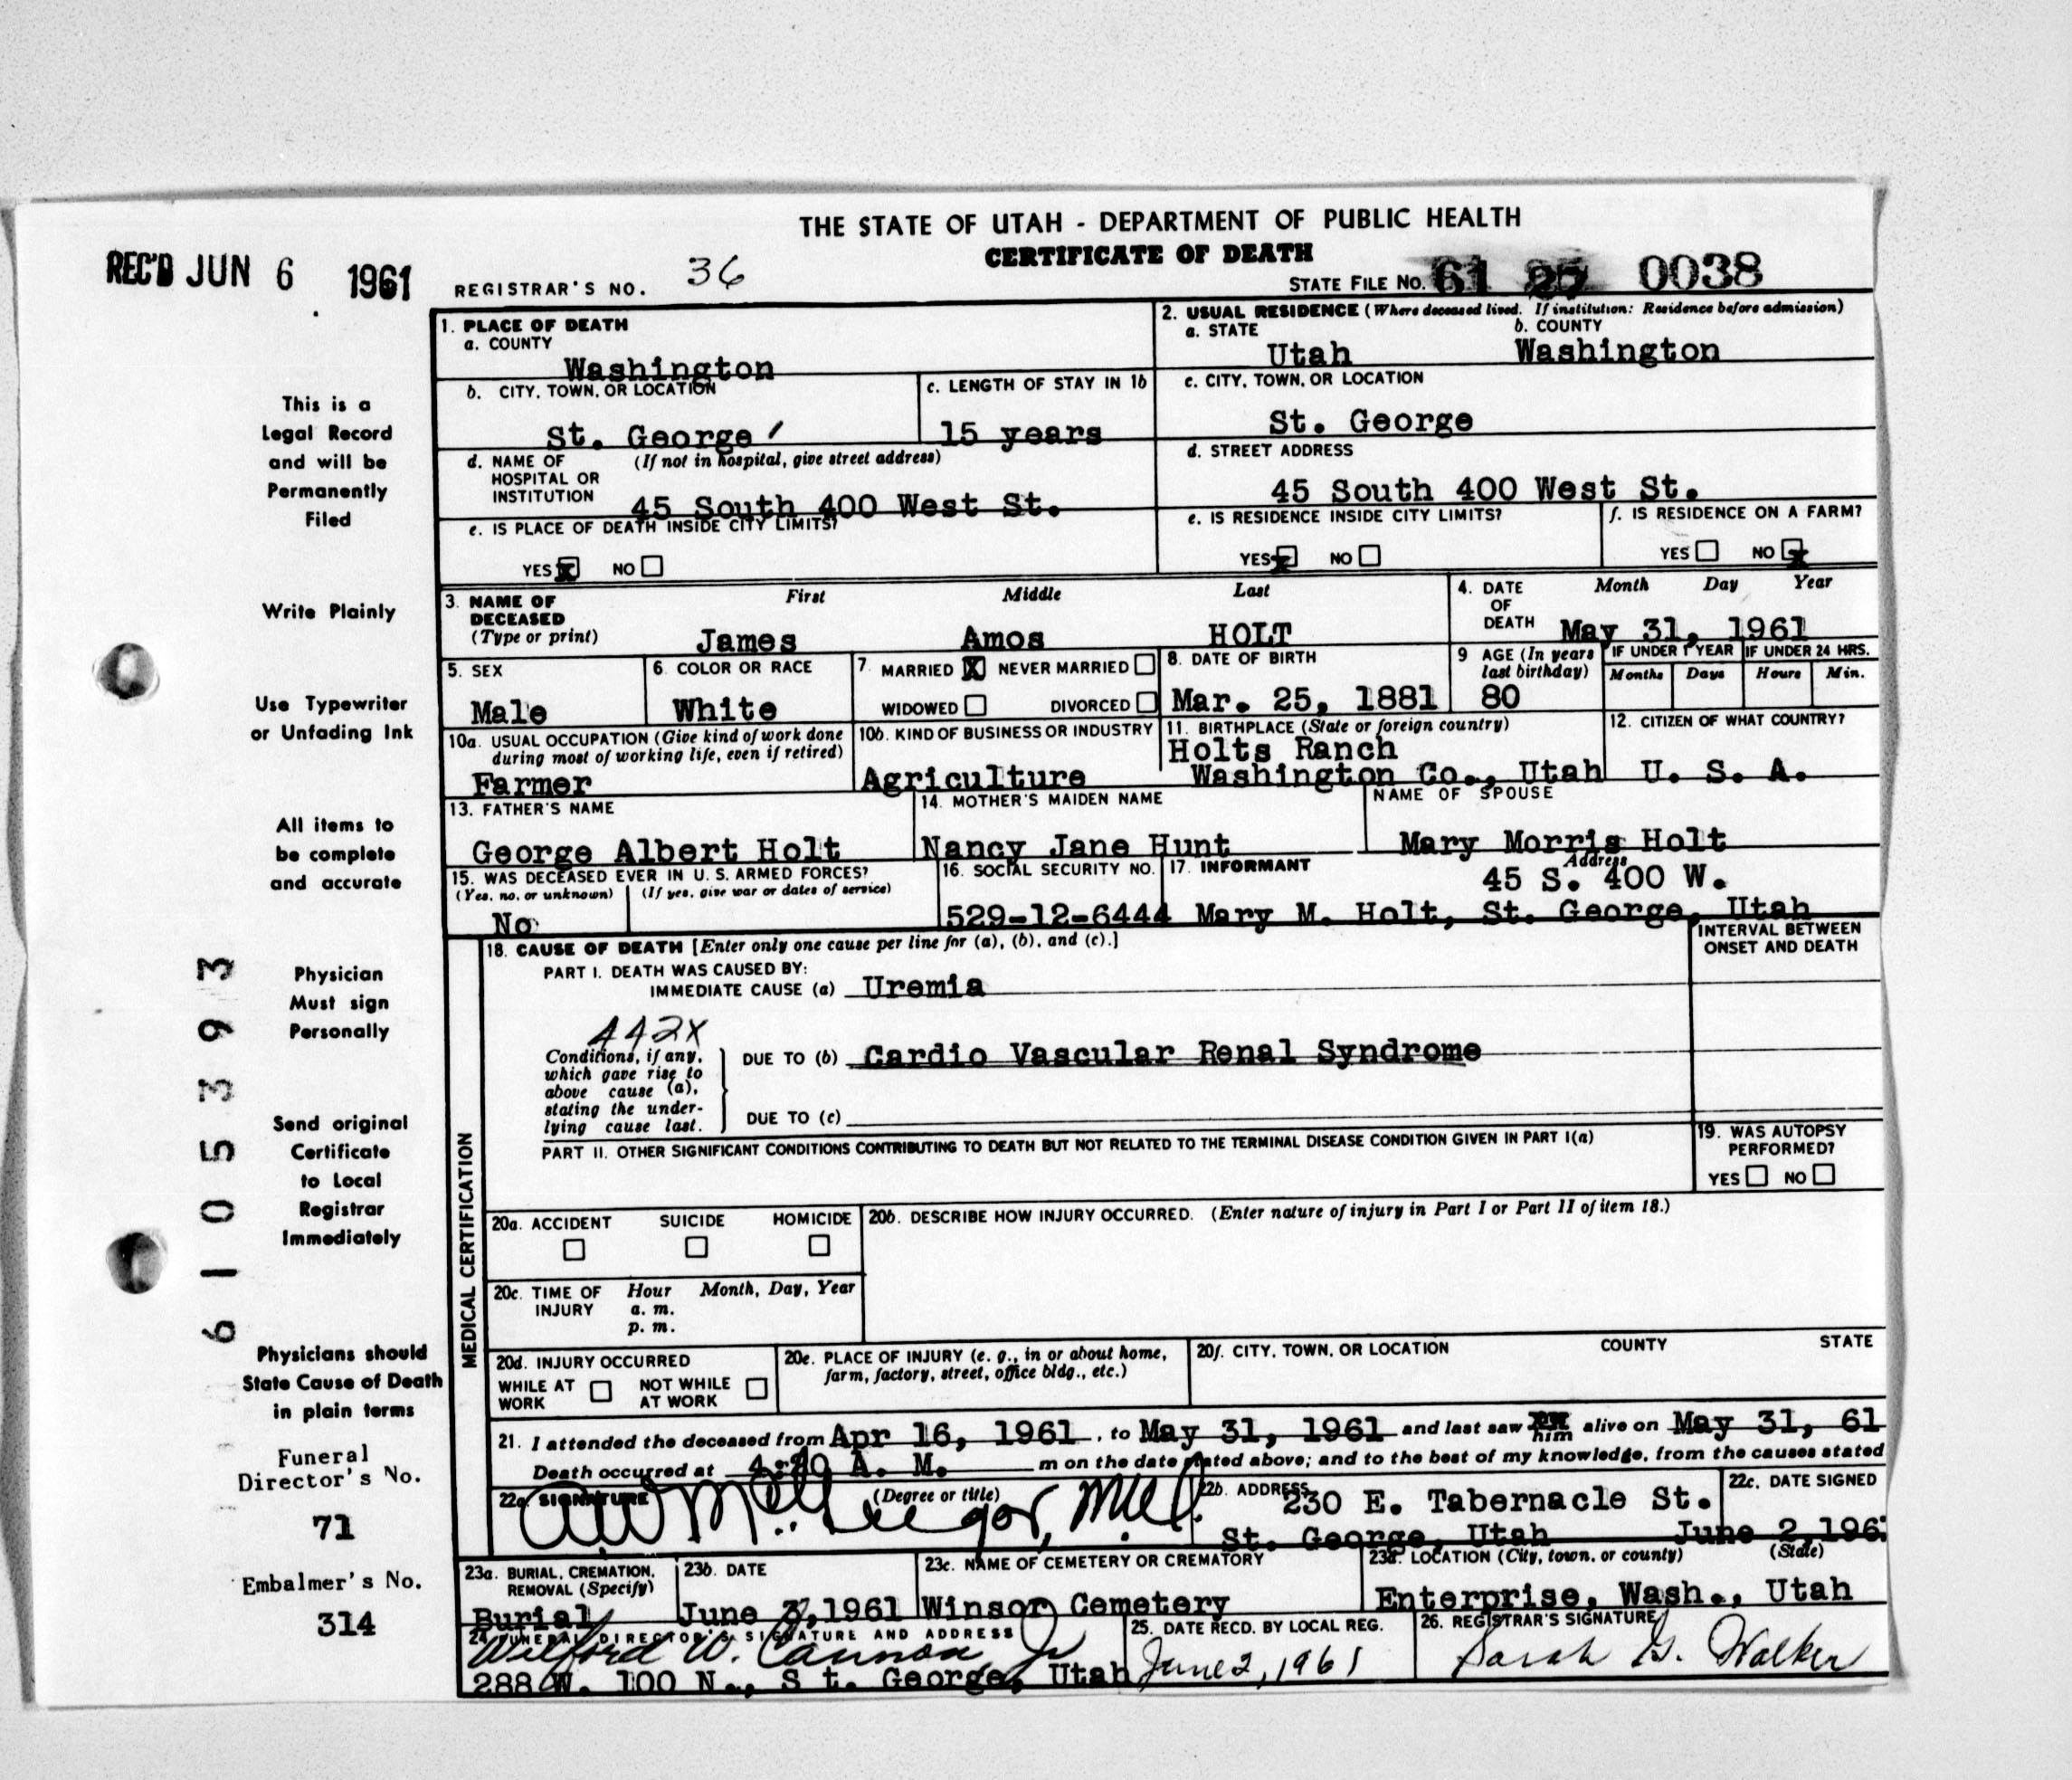 THE STATE OF UTAH - DEPARTMENT OF PUBLIC HEALTH
CERTIFICATE OF DEATH
REC'D JUN 6 1961
REGISTRAR'S NO. 36
STATE FILE NO. 61 0038
1. PLACE OF DEATH
a. COUNTY
Washington
2. USUAL RESIDENCE (Where deceased lived. If institution: Residence before admission)
a. STATE b. COUNTY
Utah Washington
b. CITY, TOWN, OR LOCATION
St. George
c. LENGTH OF STAY IN 1b
15 years
c. CITY, TOWN, OR LOCATION
St. George
d. NAME OF HOSPITAL OR INSTITUTION (If not in hospital, give street address)
45 South 400 West St.
d. STREET ADDRESS
45 South 400 West St.
e. IS PLACE OF DEATH INSIDE CITY LIMITS?
YES X NO
e. IS RESIDENCE INSIDE CITY LIMITS?
YES X NO
f. IS RESIDENCE ON A FARM?
YES NO X
3. NAME OF DECEASED (Type or print)
First Middle Last
James Amos HOLT
4. DATE OF DEATH Month Day Year
May 31, 1961
5. SEX
Male
6. COLOR OR RACE
White
7. MARRIED X NEVER MARRIED
WIDOWED DIVORCED
8. DATE OF BIRTH
Mar. 25, 1881
9 AGE (In years last birthday)
80
IF UNDER 1 YEAR IF UNDER 24 HRS.
Months Days Hours Min.
10a. USUAL OCCUPATION (Give kind of work done during most of working life, even if retired)
Farmer
10b. KIND OF BUSINESS OR INDUSTRY
Agriculture
11. BIRTHPLACE (State or foreign country)
Holts Ranch
Washington Co., Utah
12. CITIZEN OF WHAT COUNTRY?
U. S. A.
13. FATHER'S NAME
George Albert Holt
14. MOTHER'S MAIDEN NAME
Nancy Jane Hunt
NAME OF SPOUSE
Mary Morris Holt
15. WAS DECEASED EVER IN U. S. ARMED FORCES?
(Yes, no, or unknown) (If yes, give war or dates of service)
No
16. SOCIAL SECURITY NO.
529-12-6444
17. INFORMANT Address
45 S. 400 W.
Mary M. Holt, St. George, Utah
MEDICAL CERTIFICATION
18. CAUSE OF DEATH [Enter only one cause per line for (a), (b), and (c).]
INTERVAL BETWEEN ONSET AND DEATH
PART I. DEATH WAS CAUSED BY:
IMMEDIATE CAUSE (a) Uremia
442X
Conditions, if any, which gave rise to above cause (a), stating the underlying cause last.
DUE TO (b) Cardio Vascular Renal Syndrome
DUE TO (c)
PART II. OTHER SIGNIFICANT CONDITIONS CONTRIBUTING TO DEATH BUT NOT RELATED TO THE TERMINAL DISEASE CONDITION GIVEN IN PART I(a)
19. WAS AUTOPSY PERFORMED?
YES NO
20a. ACCIDENT SUICIDE HOMICIDE
20b. DESCRIBE HOW INJURY OCCURRED. (Enter nature of injury in Part I or Part II of item 18.)
20c. TIME OF INJURY Hour Month, Day, Year
a. m.
p. m.
20d. INJURY OCCURRED
WHILE AT WORK NOT WHILE AT WORK
20e. PLACE OF INJURY (e. g., in or about home, farm, factory, street, office bldg., etc.)
20f. CITY, TOWN, OR LOCATION COUNTY STATE
21. I attended the deceased from Apr 16, 1961, to May 31, 1961 and last saw him alive on May 31, 61
Death occurred at A. M. m on the date stated above; and to the best of my knowledge, from the causes stated
22a. SIGNATURE (Degree or title)
McGregor, M.D.
22b. ADDRESS
230 E. Tabernacle St.
St. George, Utah
22c. DATE SIGNED
June 2, 196
23a. BURIAL, CREMATION, REMOVAL (Specify)
Burial
23b. DATE
June 3, 1961
23c. NAME OF CEMETERY OR CREMATORY
Winsor Cemetery
23d. LOCATION (City, town, or county) (State)
Enterprise, Wash., Utah
24. FUNERAL DIRECTOR'S SIGNATURE AND ADDRESS
Wilford W. Cannon Jr
288 W. 100 N., S t. George, Utah
25. DATE RECD. BY LOCAL REG.
June 2, 1961
26. REGISTRAR'S SIGNATURE
Sarah G. Walker
This is a
Legal Record
and will be
Permanently
Filed
Write Plainly
Use Typewriter
or Unfading Ink
All items to
be complete
and accurate
Physician
Must sign
Personally
Send original
Certificate
to Local
Registrar
Immediately
Physicians should
State Cause of Death
in plain terms
Funeral
Director's No.
71
Embalmer's No.
314
61053393